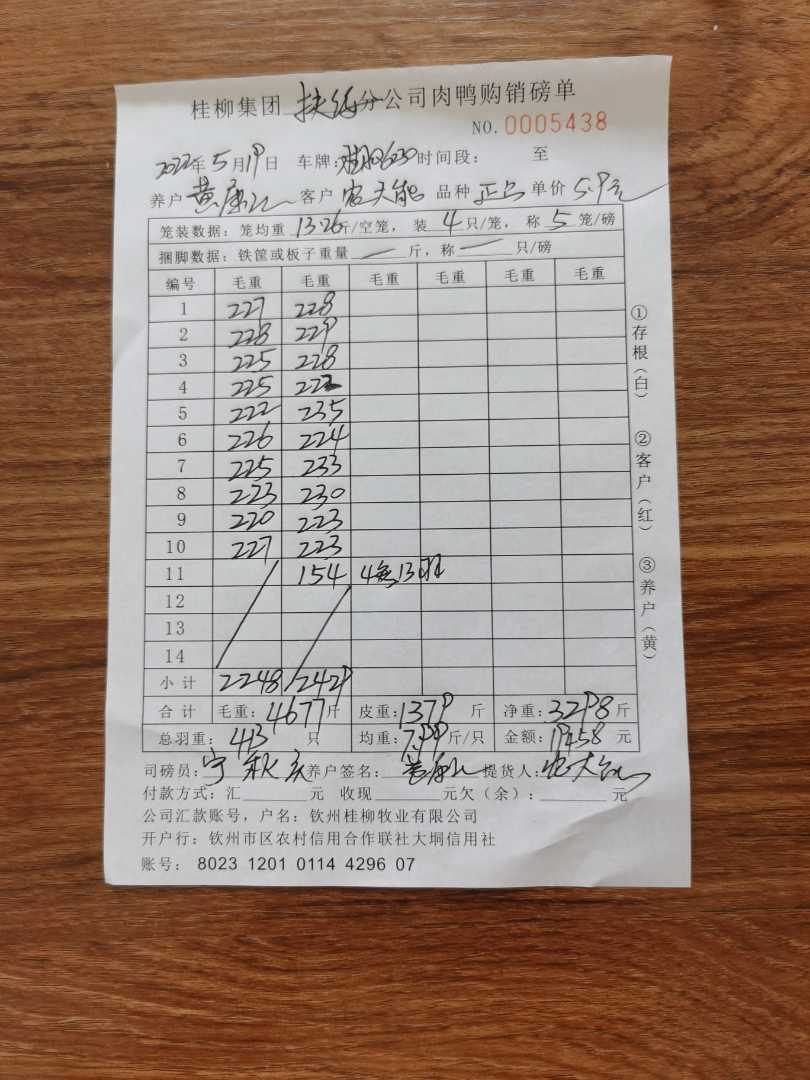 桂柳集团 扶绥分公司肉鸭购销磅单
NO.0005438
2022年5月19日 车牌:桂 0630 时间段: 至
养户 黄康 客户 农大能 品种 正品 单价 5.9元
笼装数据: 笼均重 13.26斤/空笼, 装 4 只/笼, 称 5 笼/磅
捆脚数据: 铁筐或板子重量 — 斤, 称 — 只/磅
编号 毛重 毛重 毛重 毛重 毛重 毛重
1 227 228
2 228 229
3 225 228
4 225 222
5 222 235
6 226 224
7 225 233
8 223 230
9 220 223
10 227 223
11 154 4笼13只
12
13
14
小计 2248 2429
合计 毛重:4677斤 皮重:1379 斤 净重:3298斤
总羽重: 413 只 均重:7.99斤/只 金额:19458 元
司磅员: 宁秋 养户签名: 黄康 提货人: 农大能
付款方式: 汇 元 收现 元欠(余): 元
公司汇款账号, 户名: 钦州桂柳牧业有限公司
开户行: 钦州市区农村信用合作联社大垌信用社
账号: 8023 1201 0114 4296 07
①存根(白)
②客户(红)
③养户(黄)